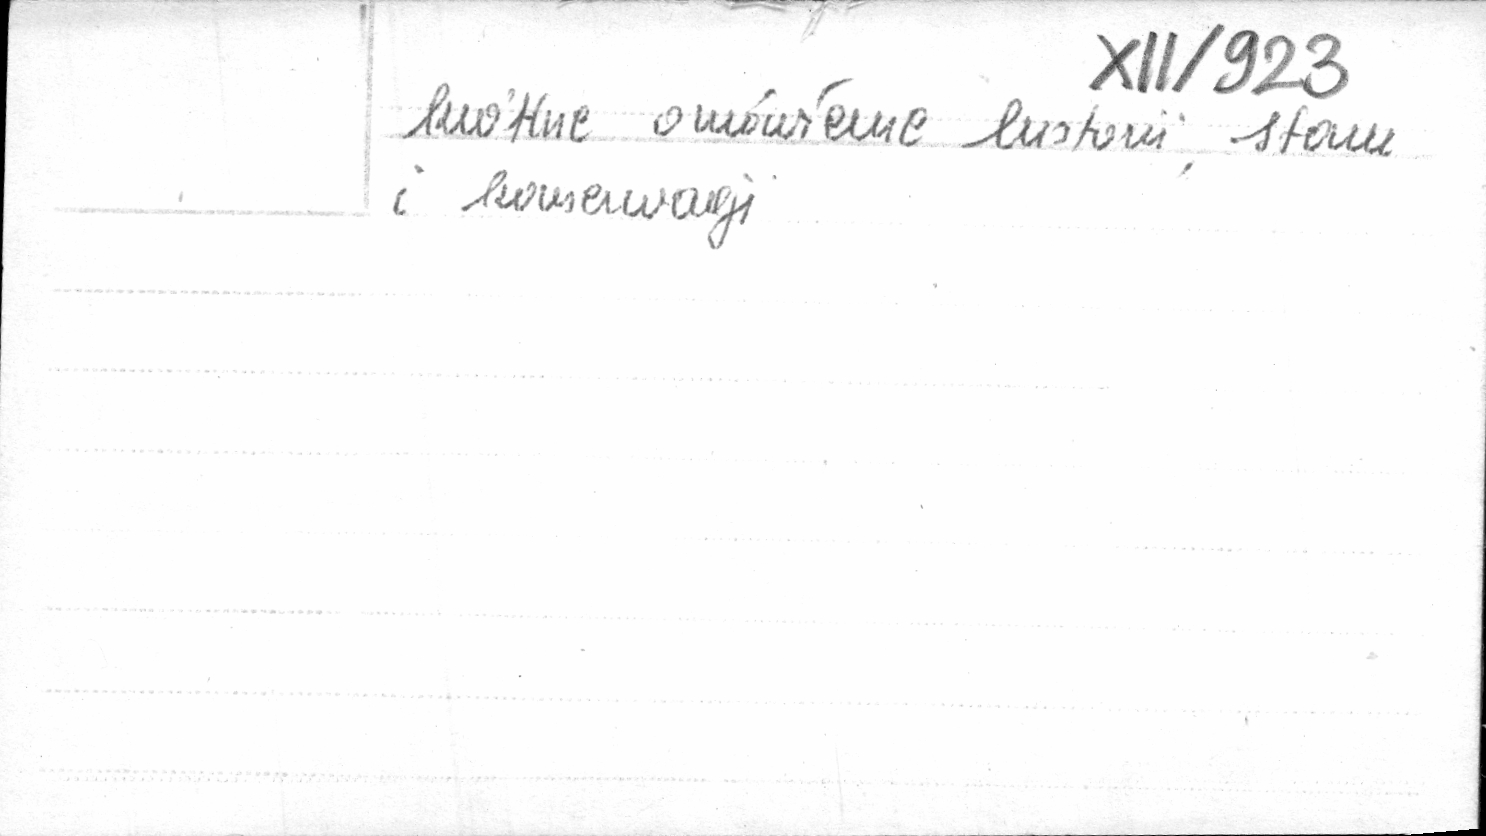 XII/923
krótkie omówienie historii, stanu
i konserwacji